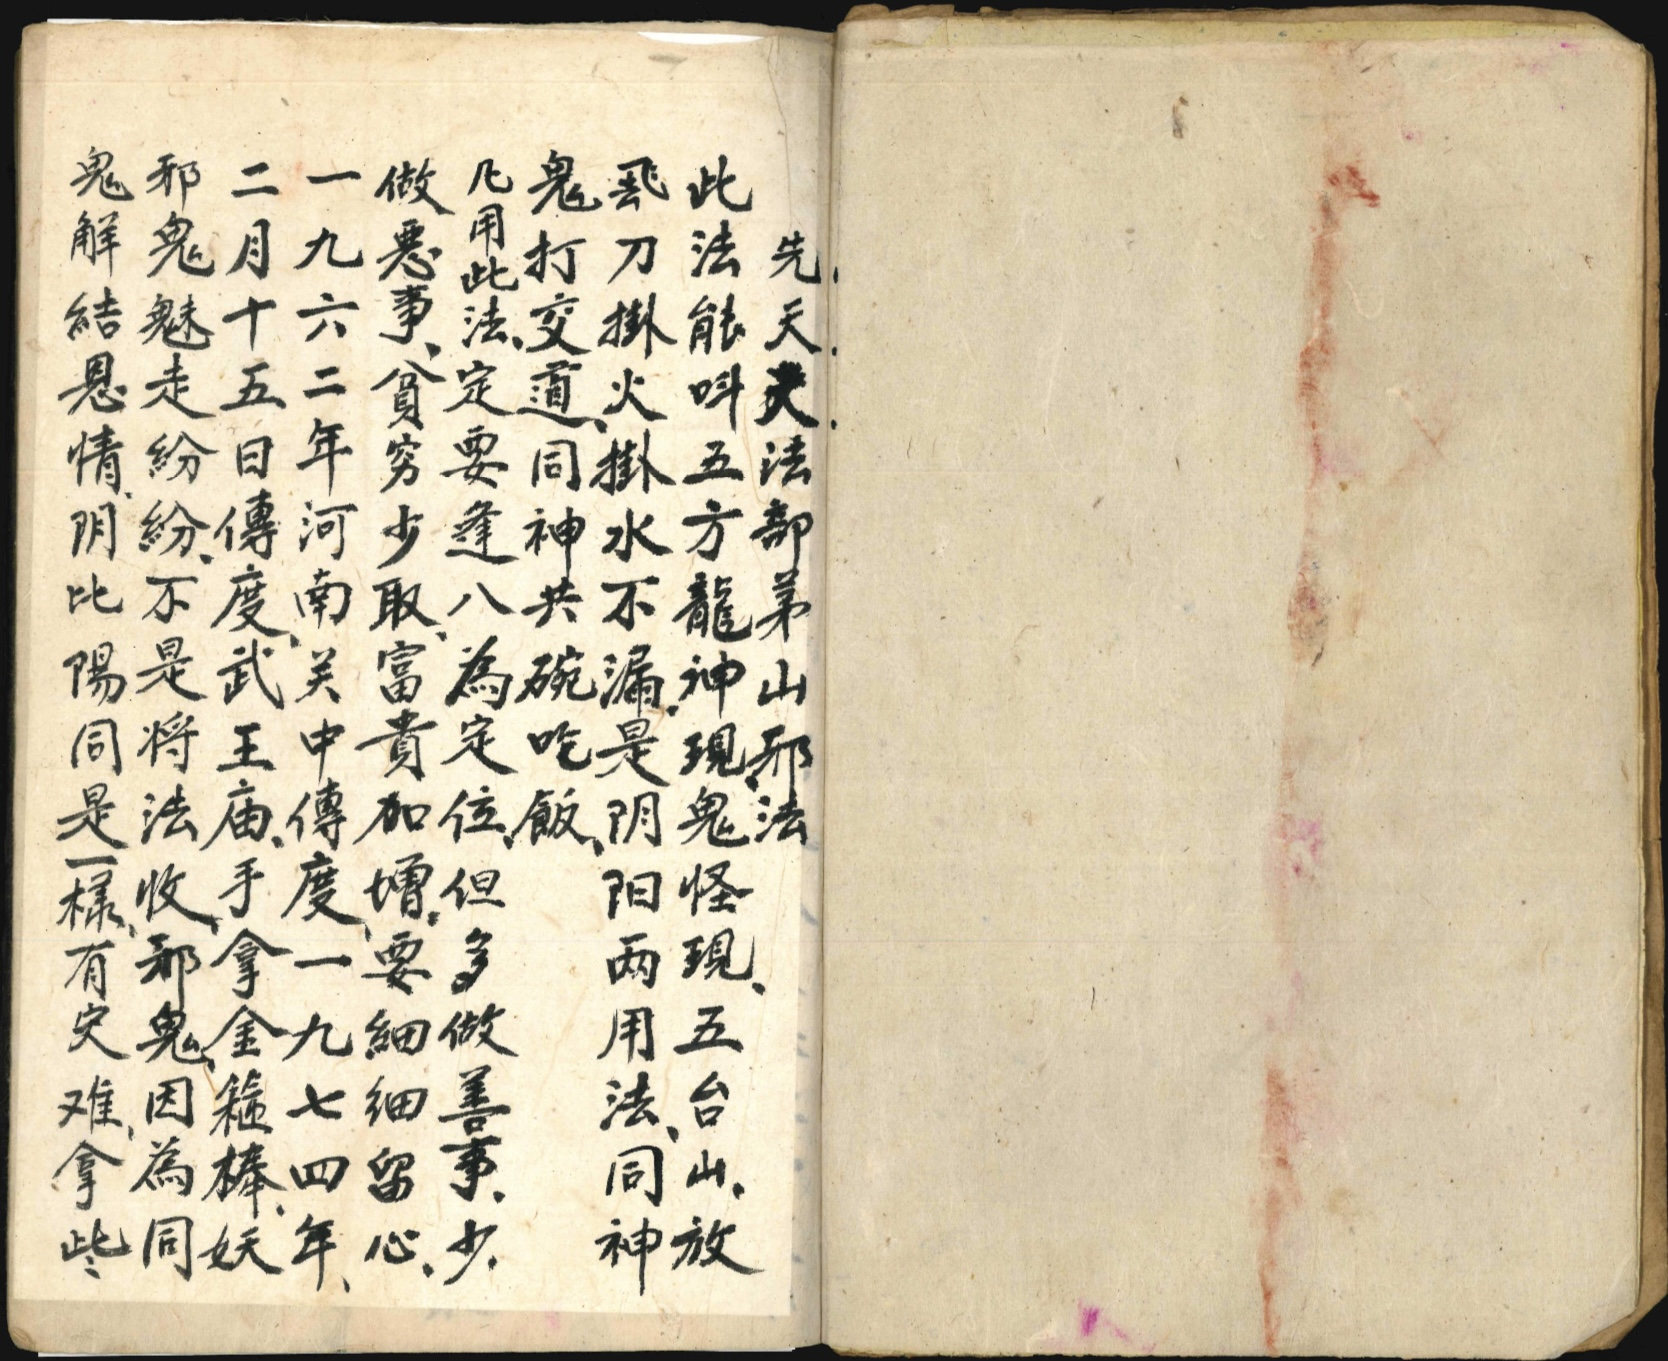 先天天法部苐山邪法
此法能呌五方龍神現、鬼怪現、五台山、放
飛刀掛火掛水不漏、是阴阳两用法、同神
鬼打交道、同神共碗吃飯、
凢用此法、定要逢八為定位、但多做善事、少
做惡事、貧穷少取、富貴加增、要細細留心、
一九六二年河南关中傳度、一九七四年、
二月十五日傳度、武王庙、手拿金箍棒、妖
邪鬼魅走紛紛、不是将法收邪鬼、因為同
鬼解結恩情、阴比陽同是一樣、有灾难、拿些